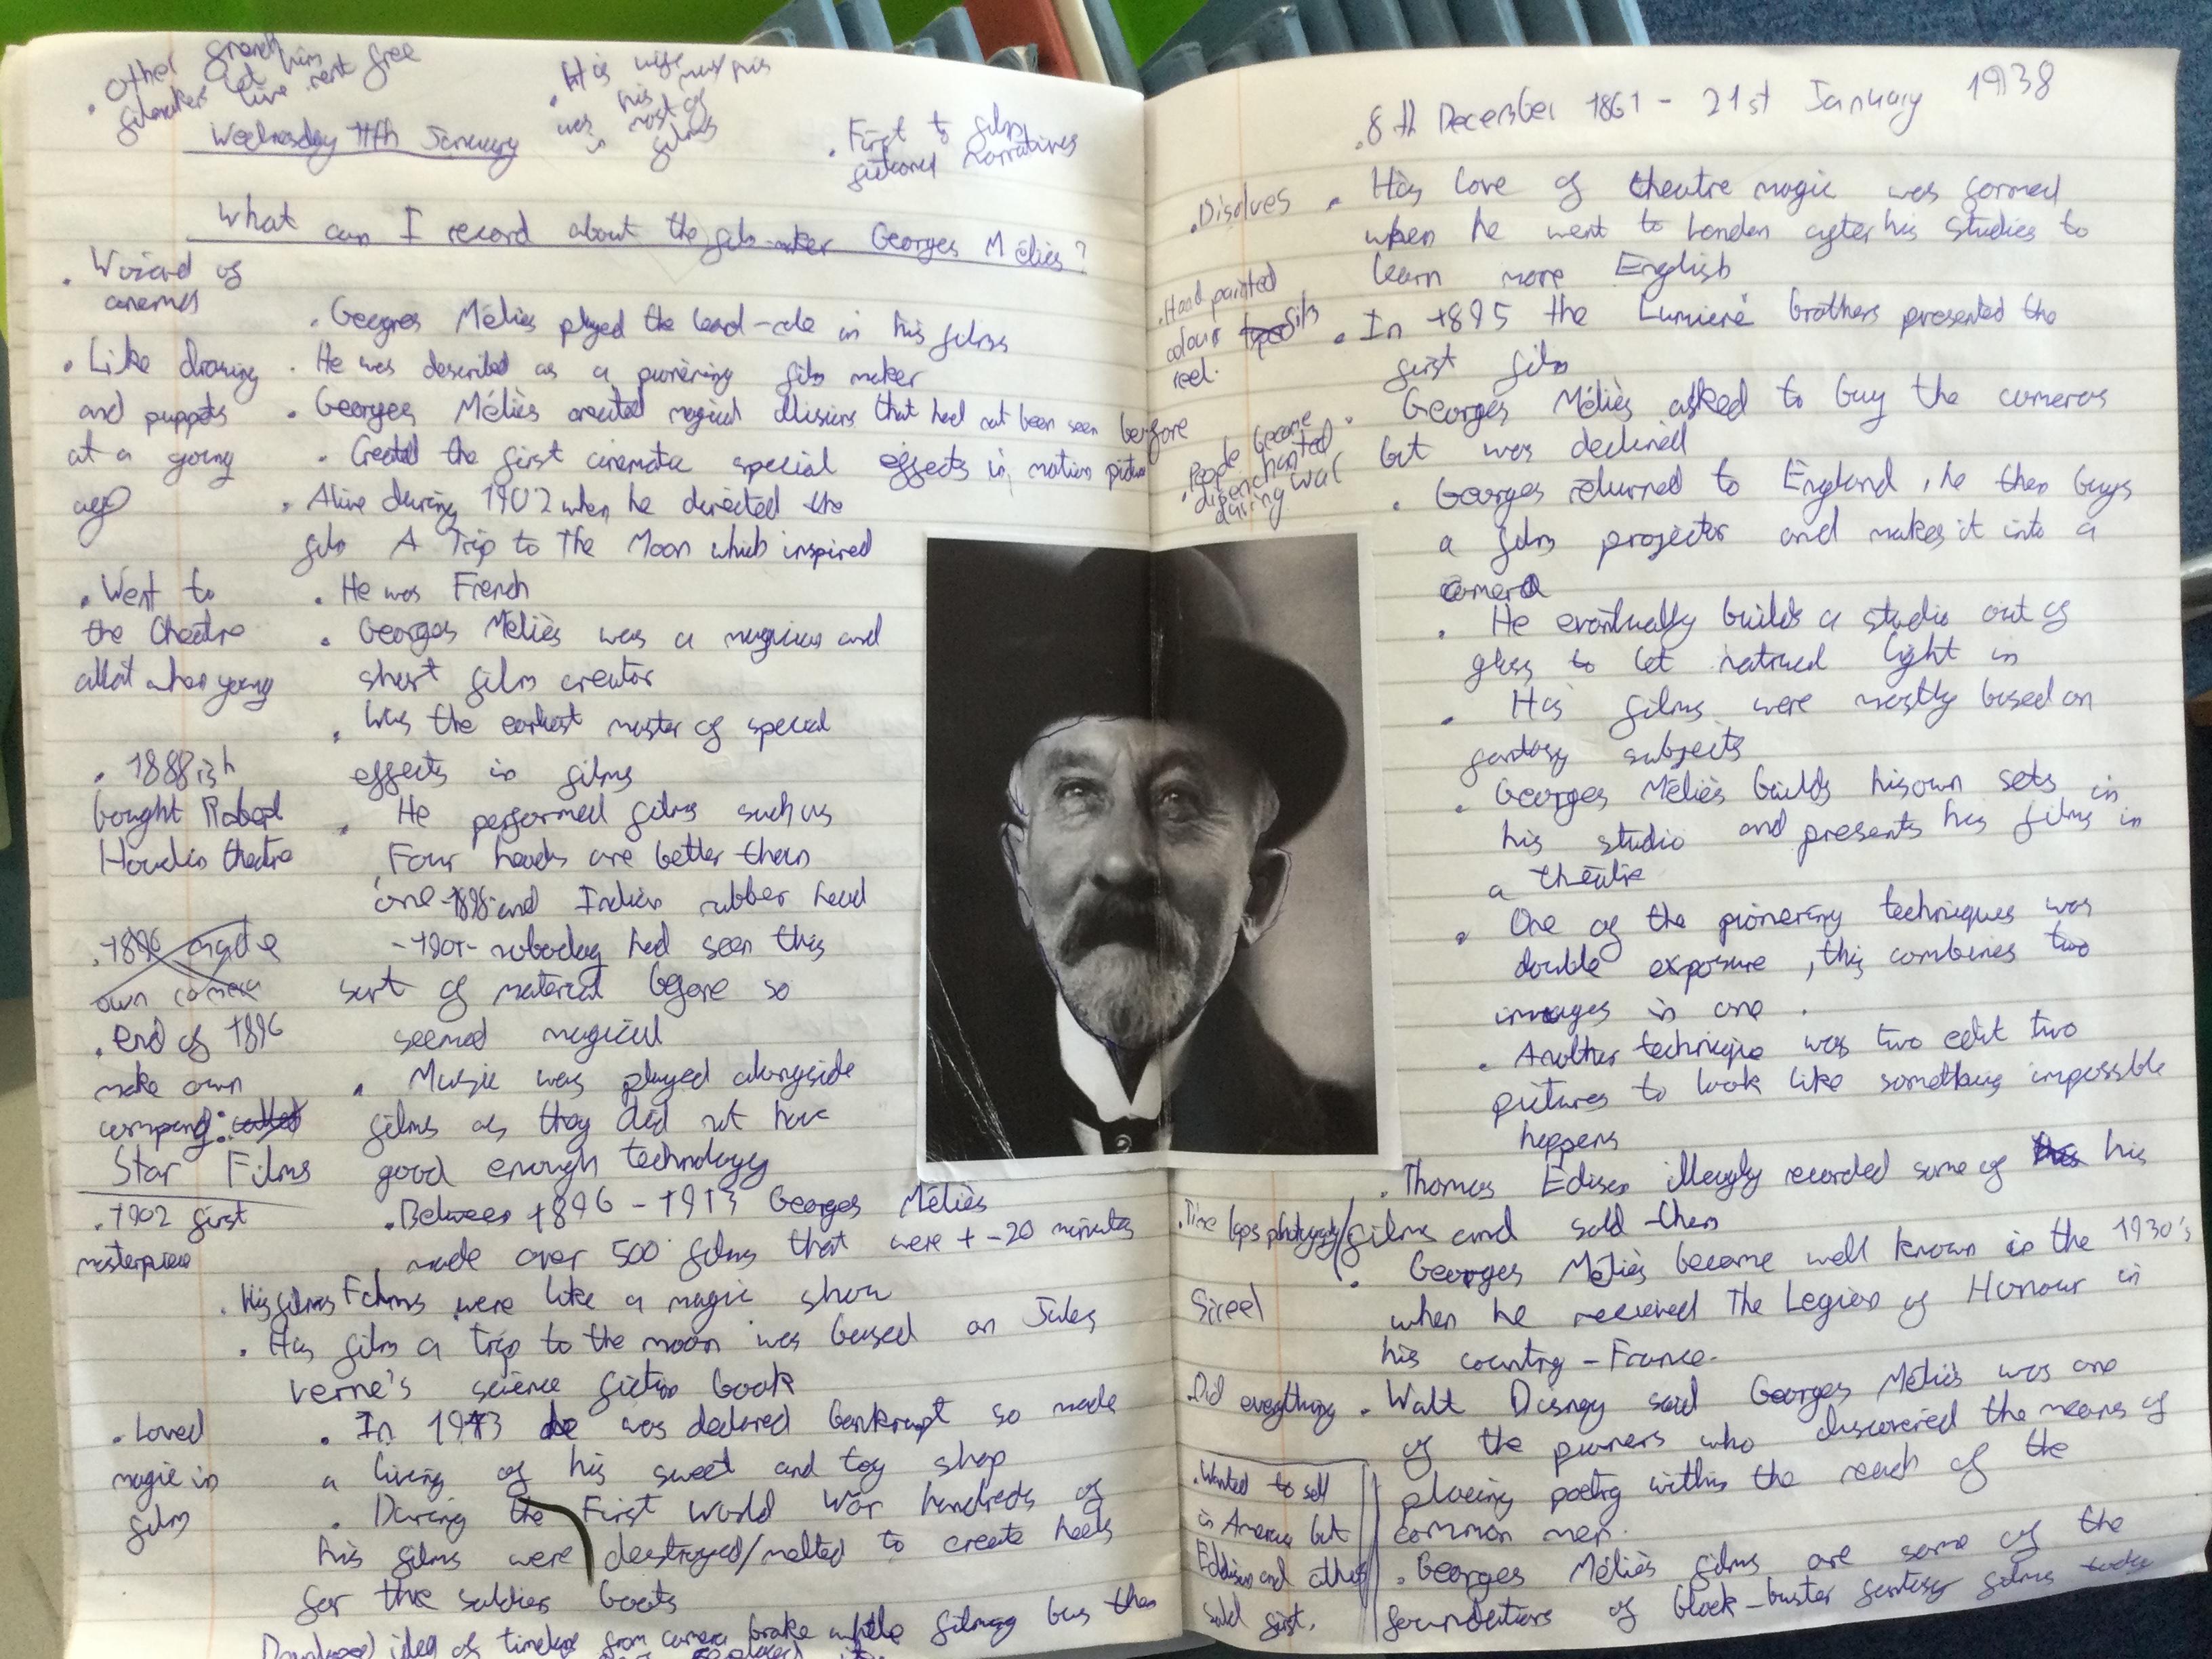 . Other french
filmakers let him
live rent free
. His wife
was his muse/ in his
most of
films
. First to film
fictional narratives
Wednesday 11th January
What can I record about the film-maker Georges Méliès?
. Wizard of
cinema
. Like drawing
and puppets
at a young
age
. Went to
the theatre
allot when young
. 1888ish
bought Robert
Houdin theatre
. 1896 made
own camera
. end of 1896
make own
company: called
Star Films
. 1902 first
masterpiece
. Loved
magic in
film
. Georges Méliès played the lead-role in his films
. He was described as a pionering film maker
. Georges Méliès created magical illisions that had not been seen before
. Created the first cinematic special effects in motion picture
. Alive during 1902 when he directed the
film A Trip to The Moon which inspired
. He was French
. Georges Méliès was a magician and
short film creator
. Was the earliest master of special
effects in films
. He performed films such as
Four heads are better than
one -1898- and Indian rubber head
-1901- noboday had seen this
sort of material before so
seemed magical
. Music was played alongside
films as they did not have
good enough technology
. Between 1896 - 1913 Georges Méliès
made over 500 films that were 1-20 minutes
. His films were like a magic show
. His film a trip to the moon was based on Jules
Verne's science fiction book
. In 1913 he was declared bankrupt so made
a living of his sweet and toy shop
. During the First World War hundreds of
his films were destroyed/melted to create heels
for the soldies boots
Developed idea of timelapse from camera brake while filming bus then
. 8th December 1861 - 21st January 1938
. Disolves
. Hand painted
colour film
reel.
. People became
disenchanted
during war
. Time laps photography
Sireel
. Did everything
. Wanted to sell
in America but
Eddison and others
sold first.
. His love of theatre magic was formed
when he went to London after his studies to
learn more English
. In 1895 the Lumiere brothers presented the
first film
. Georges Méliès asked to buy the cameras
but was declined
. Georges returned to England, he then buys
a film projector and makes it into a
camera
. He eventually builds a studio out of
glass to let natrual light in
. His films were mostly based on
fantasy subjects
. Georges Méliès builds his own sets in
his studio and presents his films in
a theatre
. One of the pionering techniques was
double exposure, this combines two
images in one.
. Another technique was two edit two
pictures to look like something impossible
happens
. Thomas Edison illegaly recorded some of his
films and sold them
. Georges Méliès became well known in the 1930's
when he recieved The Legion of Honour in
his country - France.
. Walt Disney said Georges Méliès was one
of the pioners who discovered the means of
placing poetry within the reach of the
common man.
. Georges Méliès films are some of the
foundations of block-buster fantasy films today